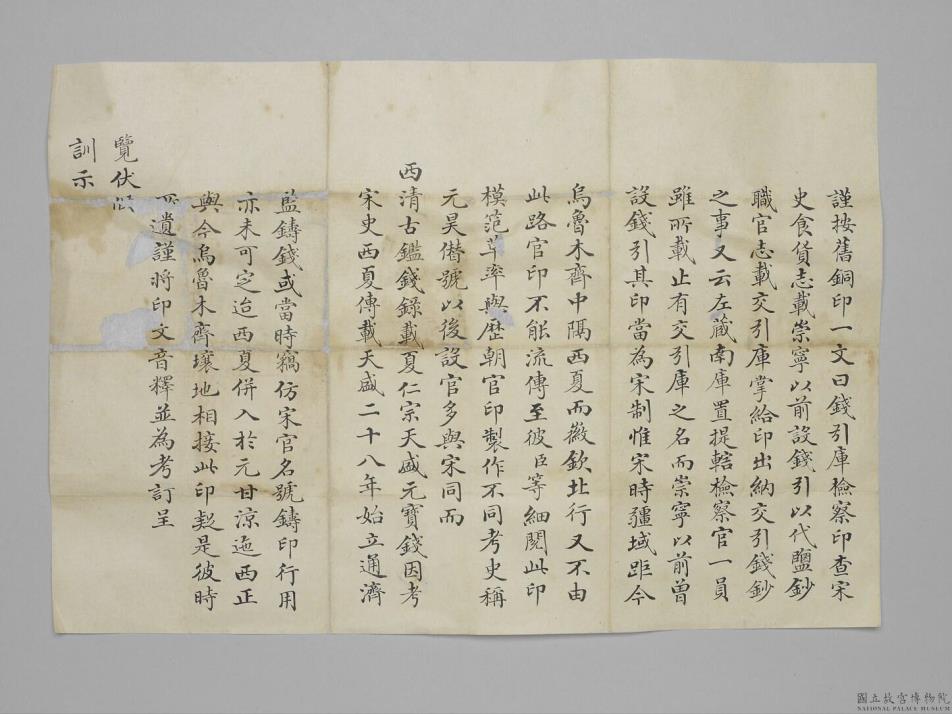 謹按舊銅印一文曰錢引庫檢察印查宋
史食貨志載崇寧以前設錢引以代鹽鈔
職官志載交引庫掌給印出納交引錢鈔
之事又云左藏南庫置提轄檢察官一員
雖所載止有交引庫之名而崇寧以前曾
設錢引其印當為宋制惟宋時疆域距今
烏魯木齊中隔西夏而徽欽北行又不由
此路官印不能流傳至彼臣等細閱此印
模范草率與歷朝官印製作不同考史稱
元昊僭號以後設官多與宋同而
西清古鑑錢錄載夏仁宗天盛元寶錢因考
宋史西夏傳載天盛二十八年始立通濟
監鑄錢或當時竊仿宋官名號鑄印行用
亦未可定迨西夏併入於元甘涼迤西正
與今烏魯木齊壤地相接此印疑是彼時
所遺謹將印文音釋並為考訂呈
覽伏候
訓示
國立故宮博物院
NATIONAL PALACE MUSEUM